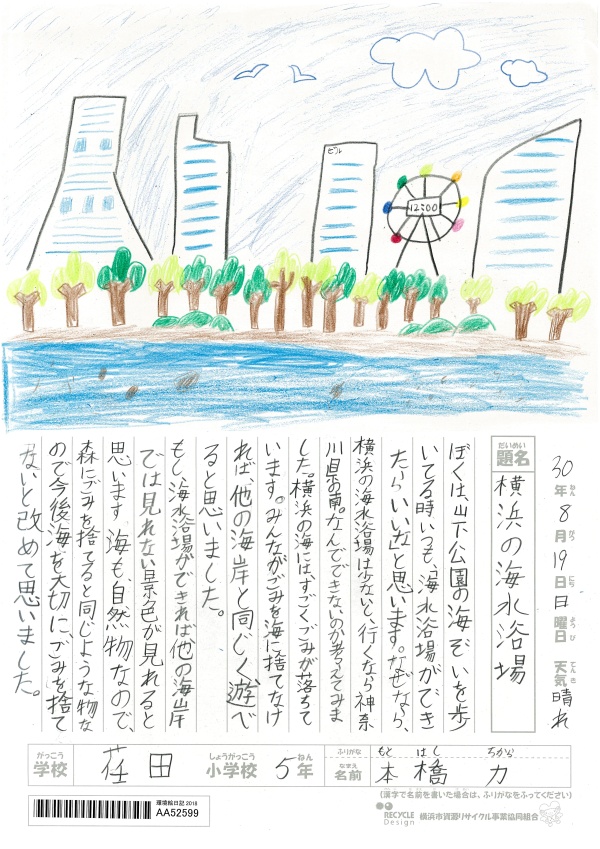 ビル
12:00
30年8月19日日曜日 天気晴れ
ねん がつ にち ようび てんき
だいめい
題名 横浜の海水浴場
ぼくは、山下公園の海ぞいを歩
いてる時いつも、海水浴場ができ
たら、いいなと思います。なぜなら、
横浜の海水浴場は少ないし、行くなら神奈
川県の南。なんでできないのか考えてみま
した。横浜の海には、すごくごみが落ちて
います。みんながごみを海に捨てなけ
れば、他の海岸と同じく遊べ
ると思いました。
もし、海水浴場ができれば他の海岸
では見れない景色が見れると
思います。海も自然物なので、
森にごみを捨てると同じような物な
ので今後海を大切に、ごみを捨て
ないと改めて思いました。
がっこう しょうがっこう ねん ふりがな もと はし ちから
学校 荏田 小学校 5年 なまえ 名前 本橋 力
(漢字で名前を書いた場合は、ふりがなをふってください)
環境絵日記 2018
AA52599
RECYCLE Design 横浜市資源リサイクル事業協同組合